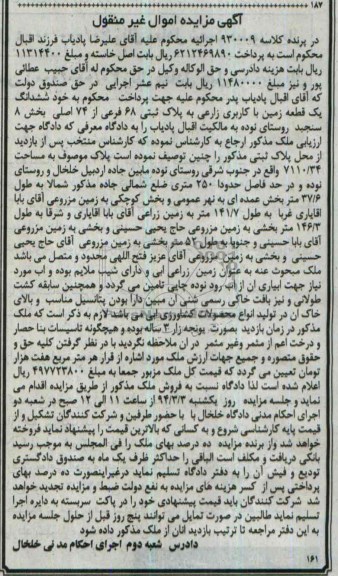 ۱۸۷
آگهی مزایده اموال غیر منقول
در پرنده کلاسه ۹۳۰۰۰۹ اجرائیه محکوم علیه آقای علیرضا پادیاب فرزند اقبال
محکوم است به پرداخت ۶۲۱۲۴۶۹۸۹۰ ریال بابت اصل خاسته و مبلغ ۱۱۳۱۴۴۰۰
ریال بابت هزینه دادرسی و حق الوکاله وکیل در حق محکوم له آقای حبیب عطائی
پور و نیز مبلغ ۱۱۴۸۰۰۰۰ ریال بابت نیم عشر اجرایی در حق صندوق دولت
که آقای اقبال پادیاب پدر محکوم علیه جهت پرداخت محکوم به خود ششدانگ
یک قطعه زمین با کاربری زراعی به پلاک ثبتی ۶۸ فرعی از ۷۴ اصلی بخش ۸
سنجبد روستای نوده به مالکیت اقبال پادیاب را به دادگاه معرفی که دادگاه جهت
ارزیابی ملک مذکور ارجاع به کارشناس نموده که کارشناس منتخب پس از بازدید
از محل پلاک ثبتی مذکور را چنین توصیف نموده است پلاک موصوف به مساحت
۷۱۱۰/۳۴ واقع در جنوب شرقی روستای نوده مابین جاده اردبیل خلخال و روستای
نوده و در حد فاصل حدودا ۲۵۰ متری ضلع شمالی جاده مذکور شمالا به طول
۳۷/۶ متر بخش عمده ای به نهر عمومی و بخش کوچکی به زمین مزروعی آقای بابا
اقایاری غربا به طول ۱۴۱/۷ متر به زمین زراعی آقای بابا اقایاری و شرقا به طول
۱۴۶/۳ متر بخشی به زمین مزروعی حاج یحیی حسینی و بخشی به زمین مزروعی
آقای بابا حسینی و جنوبا به طول ۵۲ متر بخشی به زمین مزروعی آقای حاج یحیی
حسینی و بخشی به زمین مزروعی آقای عزیز فتح اللهی محدود و متصل می باشد
ملک مبحوث عنه به عنوان زمین زراعی ابی و دارای شیب ملایم بوده و اب مورد
نیاز جهت ابیاری ان از آب رود نوده جایی تامین می گردد و همچنین سابقه کشت
طولانی و نیز بافت خاکی رسمی شنی آن مبین دارا بودن پتانسیل مناسب و بالای
خاک آن در تولید انواع محصولات کشاورزی ابی می باشد لازم به ذکر است که ملک
مذکور در زمان بازدید بصورت یونجه زار ۳ ساله بوده و هیچگونه تاسیسات بنا حصار
و درخت اعم از مثمر وغیر مثمر در ان ملاحظه نگردید با در نظر گرفتن کلیه حق و
حقوق متصوره و جمیع جهات ارزش ملک مورد اشاره از قرار هر متر مربع هفت هزار
تومان تعیین می گردد که قیمت کل ملک مزبور جمعا به مبلغ ۴۹۷۷۲۳۸۰۰ ریال
اعلام شده است لذا دادگاه نسبت به فروش ملک مذکور از طریق مزایده اقدام می
نماید و جلسه مزایده روز یکشنبه ۹۴/۳/۳ از ساعت ۱۱ الی ۱۲ صبح در شعبه دو
اجرای احکام مدنی دادگاه خلخال با با حضور طرفین و شرکت کنندگان تشکیل و از
قیمت پایه کارشناسی شروع و به کسانی که بالاترین قیمت را پیشنهاد نماید فروخته
خواهد شد واز برنده مزایده ده درصد بهای ملک را فی المجلس به موجب رسید
بانکی دریافت و مکلف است الباقی را حداکثر ظرف یک ماه به صندوق دادگستری
تودیع و فیش آن را به دفتر دادگاه تسلیم نماید درغیراینصورت ده درصد بهای
پرداختی پس از کسر هزینه های مزایده به نفع دولت ضبط و مزایده تجدید خواهد
شد شرکت کنندگان باید قیمت پیشنهادی خود را در پاکت سربسته به دایره اجرا
تسلیم نماید طالبین در صورت تمایل می توانند پنج روز قبل از حلول جلسه مزایده
به این دفتر مراجعه تا ترتیب بازدید انان از ملک مذکور داده شود
دادرس شعبه دوم اجرای احکام مدنی خلخال
۱۶۱